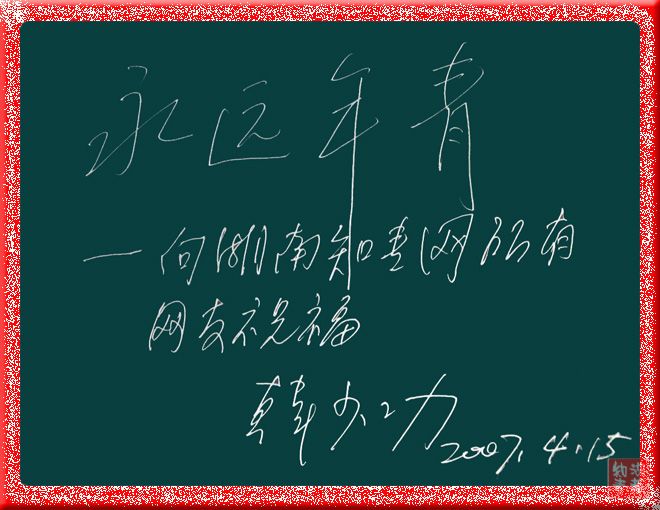 永远年青
—向湖南知青网所有
网友祝福
韩少功
2007.4.15